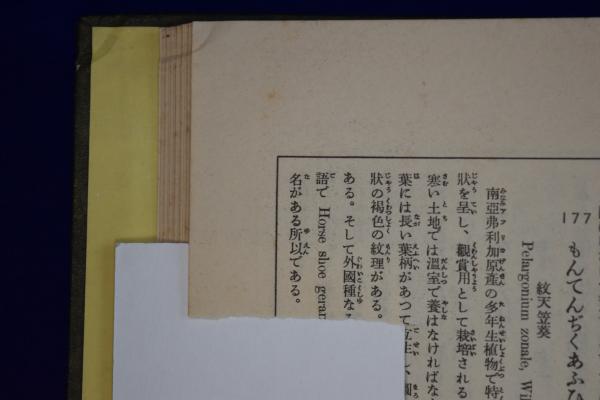 177 もんてんぢくあふひ
紋天笠葵
Pelargonium zonale, Wil
南亞弗利加原産の多年生植物で特
狀を呈し、觀賞用として栽培される
寒い土地では溫室で養はなければな
葉には長い葉柄があつて互生し、圓
狀の褐色の紋理がある。
ある。そして外國種なる
語で Horse shoe geran
名がある所以である。